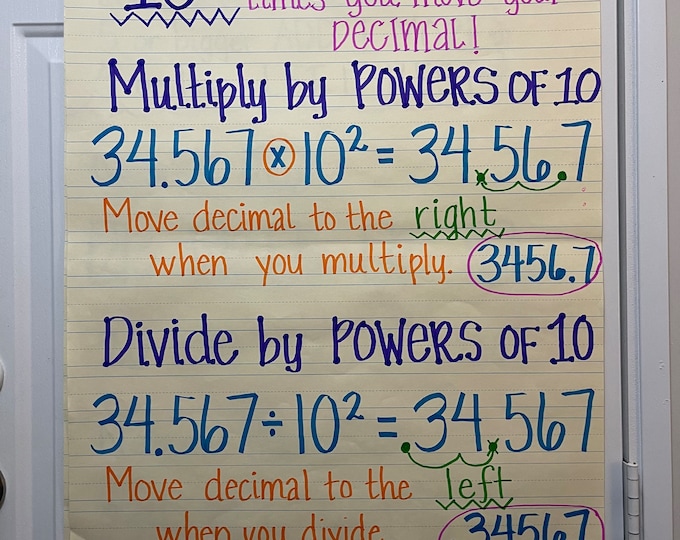 10 times you move your
DECIMAL!
Multiply by POWERS OF 10
34.567 x 10² = 34.56.7
Move decimal to the right
when you multiply. 3456.7
Divide by POWERS OF 10
34.567 ÷ 10² = .34.567
Move decimal to the left
when you divide .34567